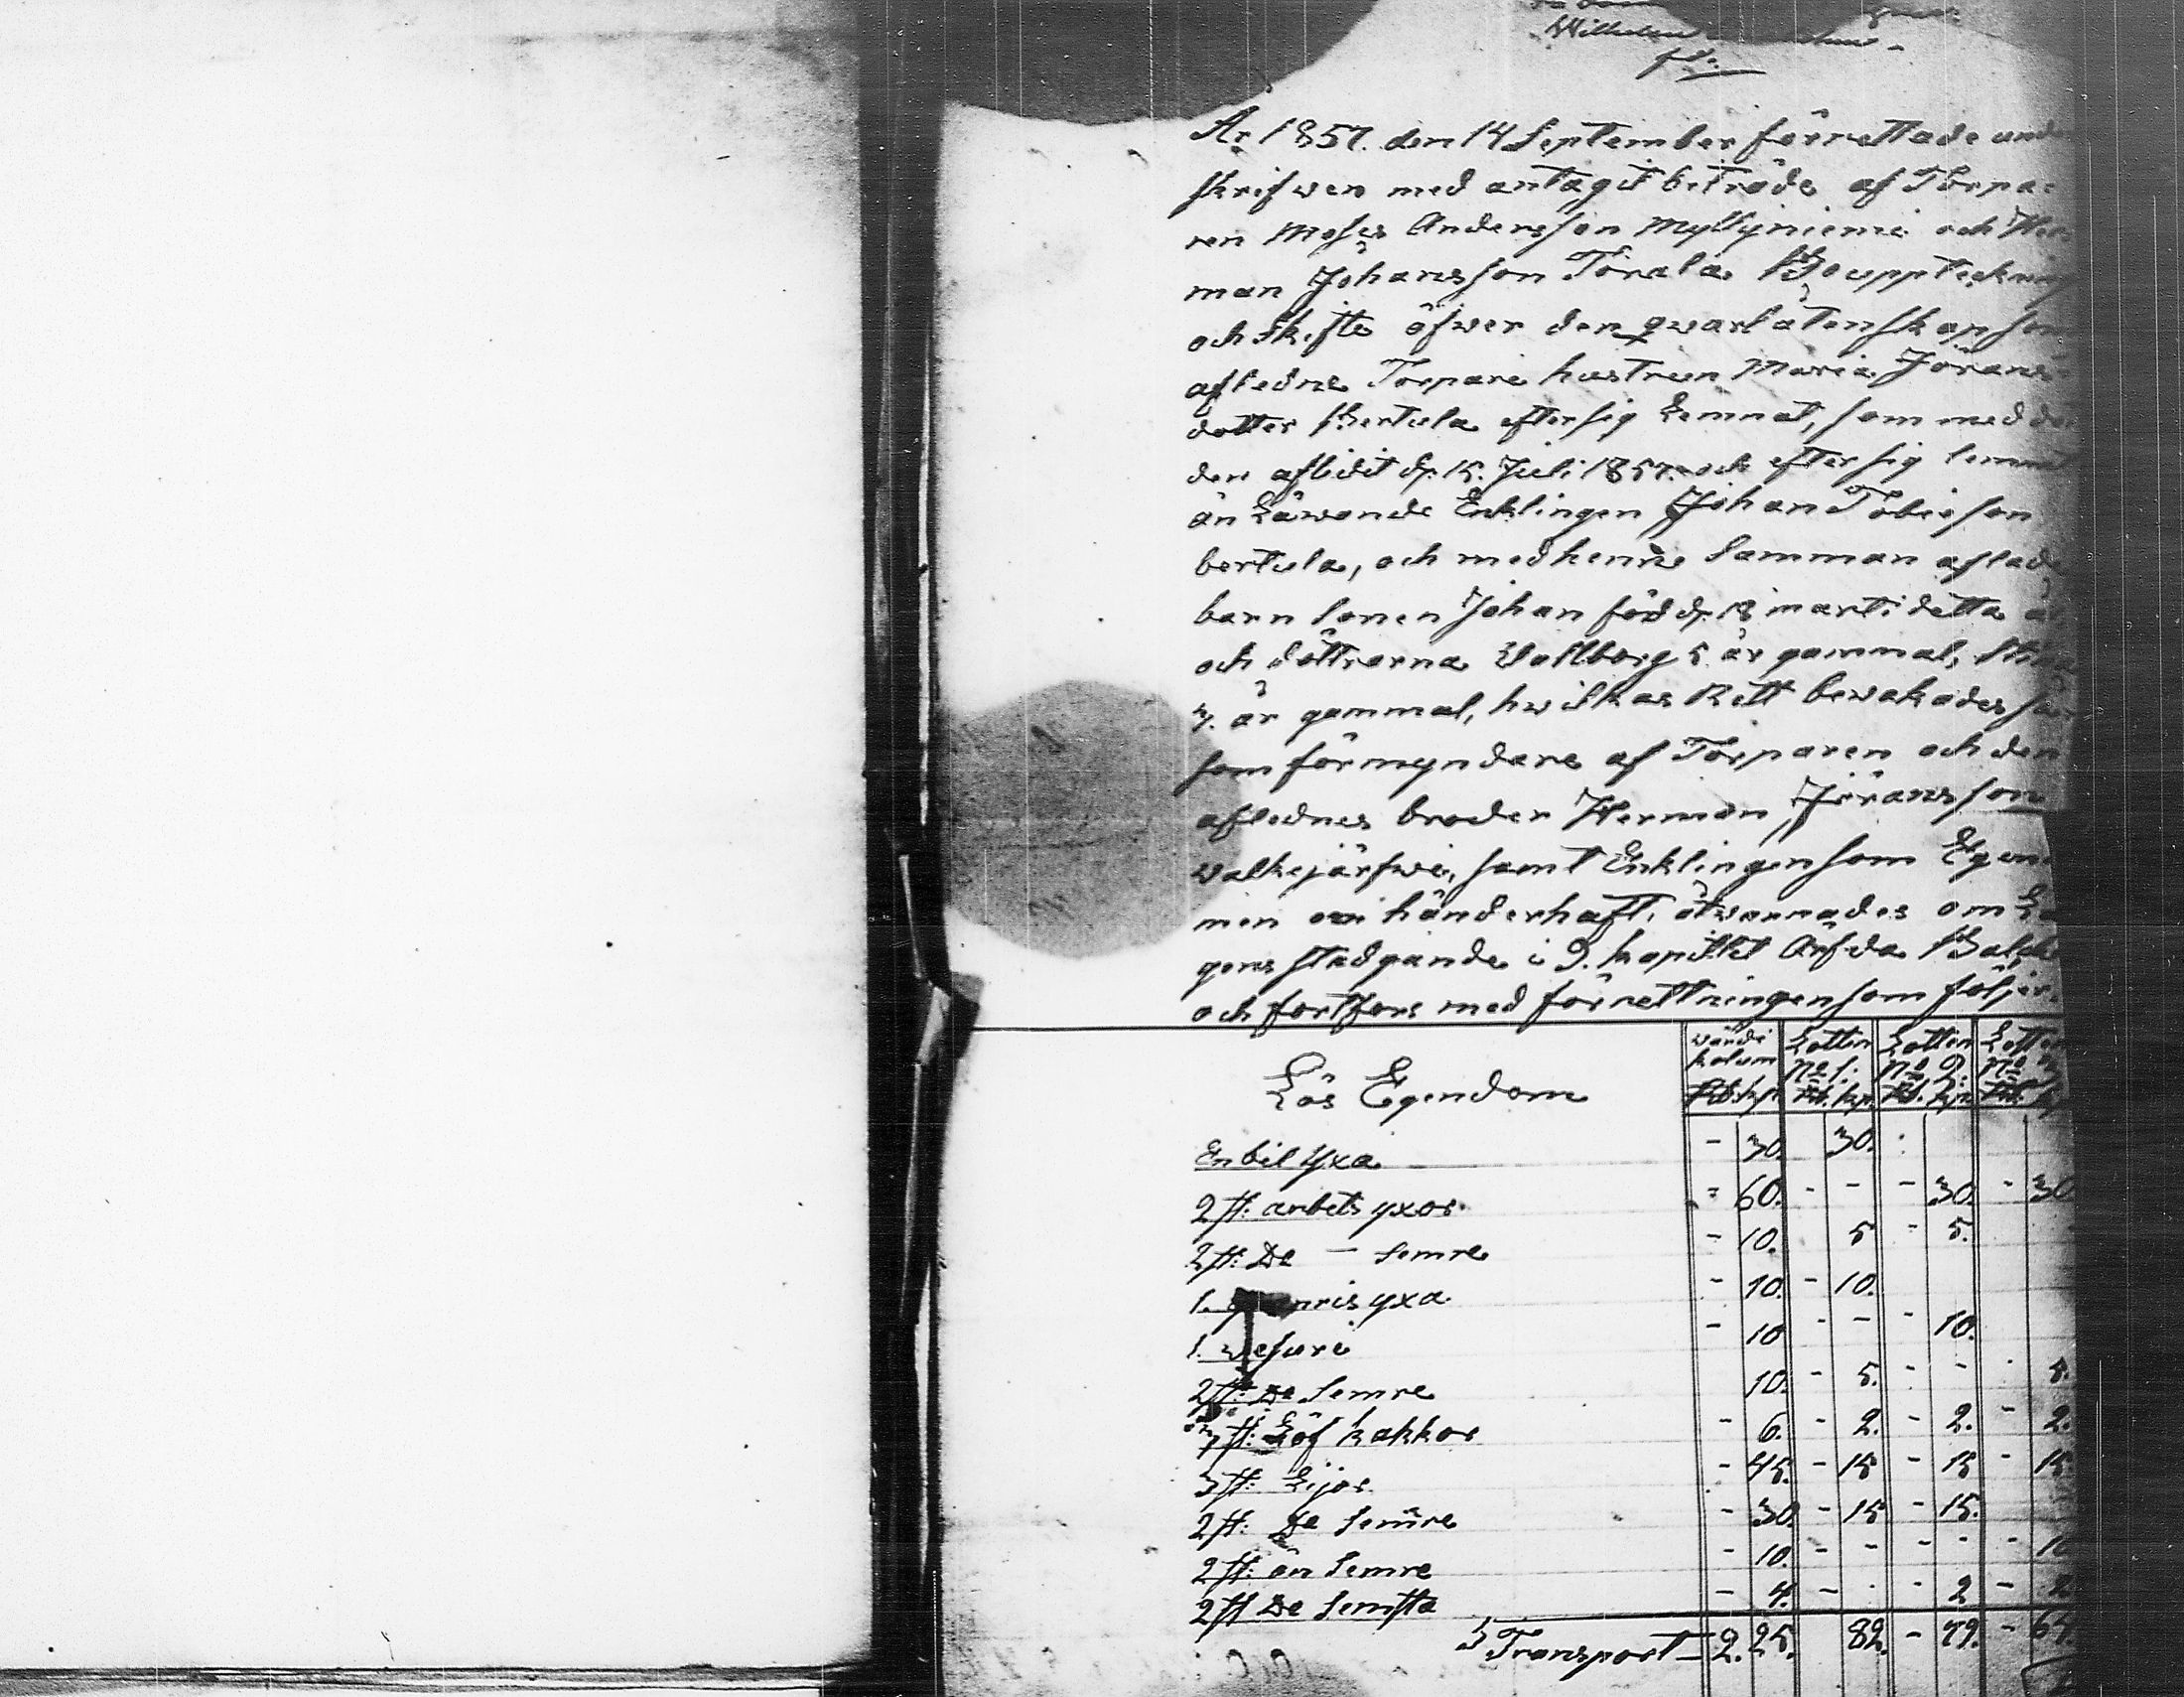 Wilhelm
År 1857. den 14 September förrettade und
skrifwen med antagit biträde af Torpa-
ren Moses Andersson Myllyniemi och Her
man Johansson Törala Bouppteckning
och Skifte öfwer den qwarlåtenskap som
afledne Torpare hustrun Maria Jörans
dotter Bertula efter sig Lemnat, som med dö
den aflidit d. 15. Juli 1857. och efter sig lemnat
än Läwande Enklingen Johan Tobieson
bertula, och med henne samman aflade
barn sonen Johan född d. 18 marti detta år
och döttrarna Wallborg 5 år gammal,
3. år gammal, hwilkas Rett bewakades så
som förmyndare af Torparen och den
aflednes broder Herman Jöransson
walkejärfwi, samt Enklingen som Egen
men om händerhaft, åtwarnades om La
gens stadgande i 9. kapitlet Ärfda Balken
och fortfors med förrettningen som följer.
Lös Egendom
wärde kolum Lotten No 1. Lotten No 2. Lotten No 3
Rb. kp. Rb. kp. Rb. kp. Rb. kp
En bil yxa - 30. 30.
2 st: arbets yxor - 60. - - - 30. - 30
2 st: De - semre - 10. 5 - 5.
1. yxa - 10. - 10.
1. wesuri - 10 - - - 10.
2 st: De Semre 10. - 5. - - 5.
3 st: Löf kakkor - 6. - 2. - 2. - 2.
3 st: Lijor - 45. - 15 - 15 - 15.
2 st: De Semre - 30. - 15 - 15.
2 st: än Semre - 10. - - - - - 10
2 st De Semsta - 4. - - 2 - 2
Transport - 2. 25. 82. - 79. - 64.